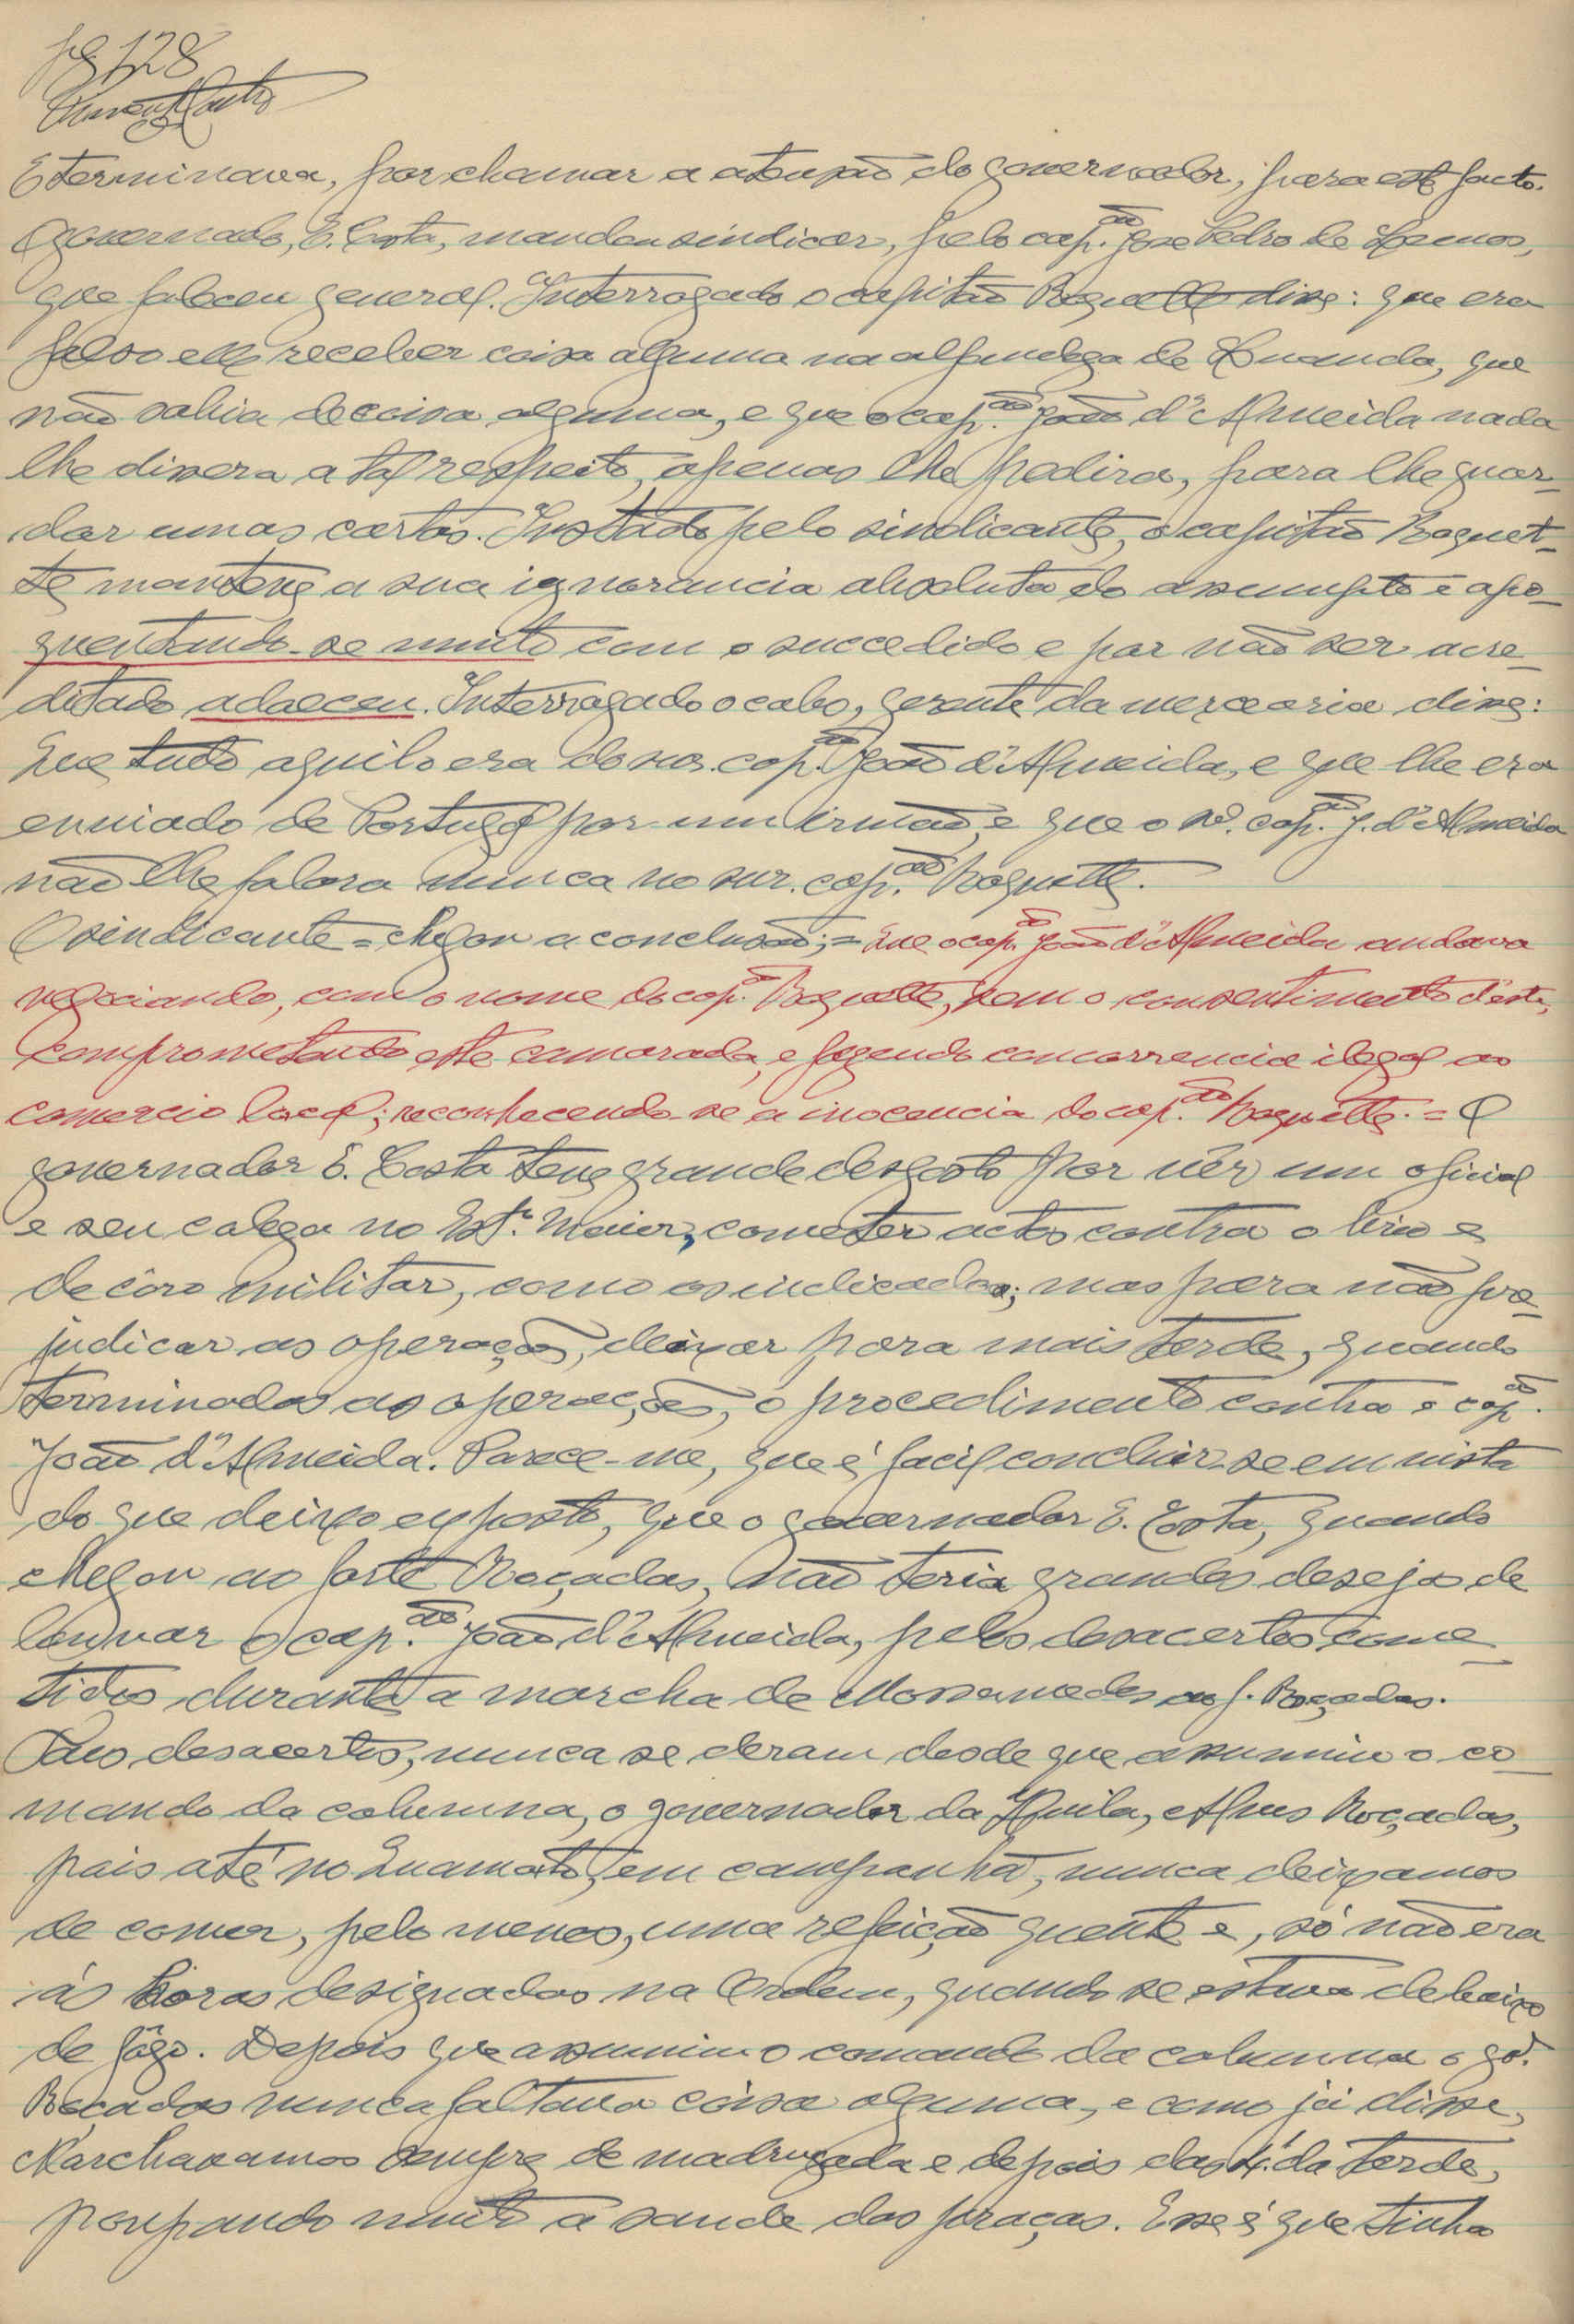 fg 128
E terminava, por chamar a atenção do governador, para este facto.
O governado, E. Costa, mandou sindicar, pelo cap.ão José Pedro de Lemos,
que faleceu general. Interrogado o capitão Roquette disse: que era
falso elle receber coisa alguma na alfandega de Loanda, que
não sabia de coisa alguma, e que o cap.ão João d'Almeida nada
lhe dissera a tal respeito, apenas lhe pedira, para lhe guar-
dar umas cartas. Instado pelo sindicante, o capitão Roquet-
te manteve a sua ignorancia absoluta do assumpto e apo-
quentando-se muito com o succedido e por não ser acre-
ditado adoeceu. Interrogado o cabo, gerente da mercearia disse:
Que tudo aquilo era do snr. cap.ão João d'Almeida, e que lhe era
enviado de Portugal por um irmão, e que o sr. cap.ão J. d'Almeida
não lhe falara nunca no snr. cap.ão Roquette.
O sindicante = chegou a conclusão; = Que o cap.ão João d'Almeida andava
negociando, com o nome do cap.ão Roquette, sem o consentimento d'este,
comprometendo este camarada, e fazendo concorrencia ilegal ao
comercio local; reconhecendo-se a inocencia do cap.ão Roquette. = O
governador E. Costa teve grande desgosto por vêr um oficial
e seu colega no Est.º Maior, cometer actos contra o brio e
decôro militar, como os indicados; mas para não pre-
judicar as operações, deixar para mais tarde, quando
terminadas as operações, o procedimento contra o cap.ão
João d'Almeida. Parece-me, que é facil concluir-se em vista
do que deixo exposto, que o governador E. Costa, quando
chegou ao forte Roçadas, não teria grandes desejos de
louvar o cap.ão João d'Almeida, pelos desacertos come-
tidos durante a marcha de Mossamedes ao f. Roçadas.
Taes desacertos, nunca se deram desde que assumiu o co-
mando da columna, o governador da Huila, Alves Roçadas,
pois até no Cuamato, em campanha, nunca deixamos
de comer, pelo menos, uma refeição quente e, só não era
ás horas designadas na Ordem, quando se estava debaixo
de fôgo. Depois que assumiu o comando da columna o go.r
Roçadas nunca faltava coisa alguma, e como já disse,
Marchavamos sempre de madrugada e depois das 4 da tarde,
poupando muito a saude das praças. Esse é que tinha